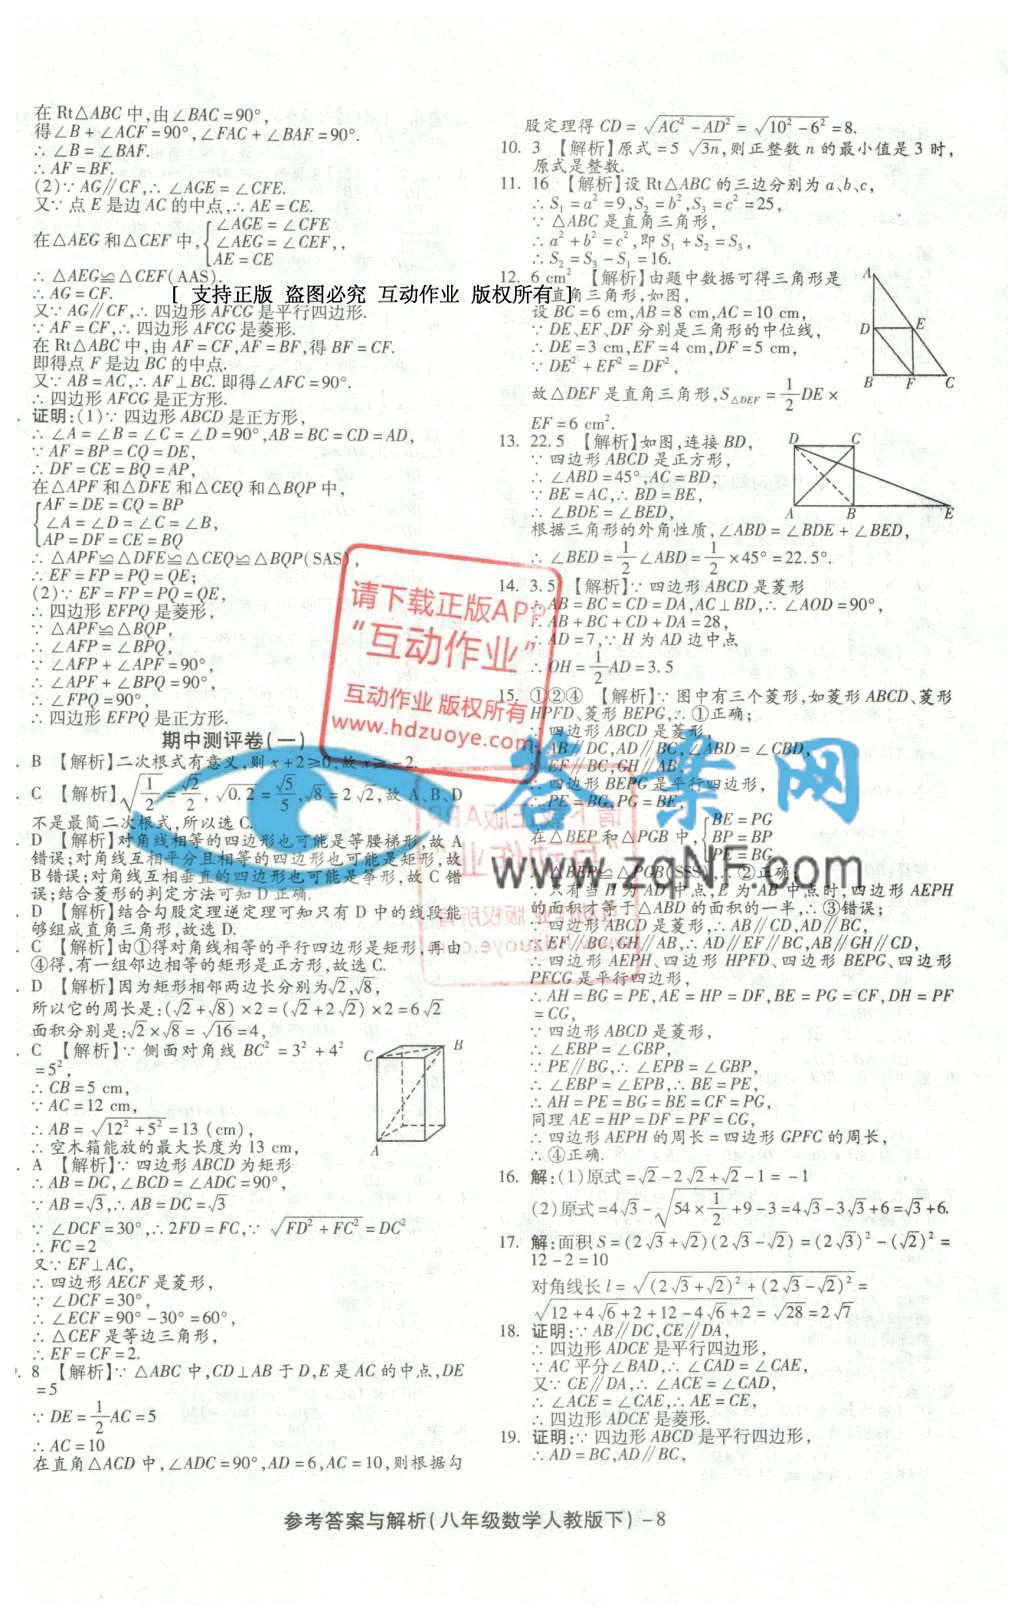 在 Rt△ABC 中,由∠BAC=90°,
得∠B+∠ACF=90°,∠FAC+∠BAF=90°.
∴∠B=∠BAF.
∴AF=BF.
(2)∵AG∥CF,∴∠AGE=∠CFE.
又∵点 E 是边 AC 的中点,∴AE=CE.
在△AEG 和△CEF 中, { ∠AGE=∠CFE
∠AEG=∠CEF, ,
AE=CE
∴△AEG≌△CEF(AAS).
∴AG=CF.
[ 支持正版 盗图必究 互动作业 版权所有 ]
又∵AG∥CF,∴四边形 AFCG 是平行四边形.
∵AF=CF,∴四边形 AFCG 是菱形.
在 Rt△ABC 中,由 AF=CF,AF=BF,得 BF=CF.
即得点 F 是边 BC 的中点.
又∵AB=AC,∴AF⊥BC. 即得∠AFC=90°.
∴四边形 AFCG 是正方形.
证明:(1)∵四边形 ABCD 是正方形,
∴∠A=∠B=∠C=∠D=90°,AB=BC=CD=AD,
∵AF=BP=CQ=DE,
∴DF=CE=BQ=AP,
在△APF 和△DFE 和△CEQ 和△BQP 中,
{ AF=DE=CQ=BP
∠A=∠D=∠C=∠B,
AP=DF=CE=BQ
∴△APF≌△DFE≌△CEQ≌△BQP(SAS),
∴EF=FP=PQ=QE;
(2)∵EF=FP=PQ=QE,
∴四边形 EFPQ 是菱形,
∵△APF≌△BQP,
∴∠AFP=∠BPQ,
∵∠AFP+∠APF=90°,
∴∠APF+∠BPQ=90°,
∴∠FPQ=90°,
∴四边形 EFPQ 是正方形.
期中测评卷(一)
B 【解析】二次根式有意义,则 x+2≥0,故 x≥-2.
C 【解析】√(1/2)=√2/2, √0.2=√5/5,√8=2√2,故 A、B、D
不是最简二次根式,所以选 C.
D 【解析】对角线相等的四边形也可能是等腰梯形,故 A
错误;对角线互相平分且相等的四边形也可能是矩形,故
B 错误;对角线互相垂直的四边形也可能是筝形,故 C 错
误;结合菱形的判定方法可知 D 正确.
D 【解析】结合勾股定理逆定理可知只有 D 中的线段能
够组成直角三角形,故选 D.
C 【解析】由①得对角线相等的平行四边形是矩形,再由
④得,有一组邻边相等的矩形是正方形,故选 C.
D 【解析】因为矩形相邻两边长分别为√2,√8,
所以它的周长是:(√2+√8)×2=(√2+2√2)×2=6√2
面积分别是:√2×√8=√16=4,
C 【解析】∵侧面对角线 BC²=3²+4²
=5²,
∴CB=5 cm,
∵AC=12 cm,
∴AB=√(12²+5²)=13(cm),
∴空木箱能放的最大长度为 13 cm,
C B
A
A 【解析】∵四边形 ABCD 为矩形
∴AB=DC,∠BCD=∠ADC=90°,
∵AB=√3,∴AB=DC=√3
∵∠DCF=30°,∴2FD=FC,∵√(FD²+FC²)=DC²
∴FC=2
又∵EF⊥AC,
∴四边形 AECF 是菱形,
∵∠DCF=30°,
∴∠ECF=90°-30°=60°,
∴△CEF 是等边三角形,
∴EF=CF=2.
8 【解析】∵△ABC 中,CD⊥AB 于 D,E 是 AC 的中点,DE
=5
∵DE=1/2AC=5
∴AC=10
在直角△ACD 中,∠ADC=90°,AD=6,AC=10,则根据勾
股定理得 CD=√(AC²-AD²)=√(10²-6²)=8.
10. 3 【解析】原式=5√3n,则正整数 n 的最小值是 3 时,
原式是整数.
11. 16 【解析】设 Rt△ABC 的三边分别为 a、b、c,
∴S₁=a²=9,S₂=b²,S₃=c²=25,
∵△ABC 是直角三角形,
∴a²+b²=c²,即 S₁+S₂=S₃,
∴S₂=S₃-S₁=16.
12. 6 cm² 【解析】由题中数据可得三角形是
直角三角形,如图,
设 BC=6 cm,AB=8 cm,AC=10 cm,
∵DE、EF、DF 分别是三角形的中位线,
∴DE=3 cm,EF=4 cm,DF=5 cm,
∵DE²+EF²=DF²,
故△DEF 是直角三角形,S△DEF=1/2DE×
EF=6 cm².
A
D E
B F C
13. 22.5 【解析】如图,连接 BD,
∵四边形 ABCD 是正方形,
∴∠ABD=45°,AC=BD,
∵BE=AC,∴BD=BE,
∴∠BDE=∠BED,
根据三角形的外角性质,∠ABD=∠BDE+∠BED,
∴∠BED=1/2∠ABD=1/2×45°=22.5°.
D C
A B E
14. 3.5 【解析】∵四边形 ABCD 是菱形
∴AB=BC=CD=DA,AC⊥BD,∴∠AOD=90°,
∴AB+BC+CD+DA=28,
∴AD=7,∵H 为 AD 边中点
∴OH=1/2AD=3.5
15. ①②④ 【解析】∵图中有三个菱形,如菱形 ABCD、菱形
HPFD、菱形 BEPG,∴①正确;
∵四边形 ABCD 是菱形,
∴AB∥DC,AD∥BC,∠ABD=∠CBD,
∵EF∥BC,GH∥AB,
∴四边形 BEPG 是平行四边形,
∴PE=BG,PG=BE,
在△BEP 和△PGB 中, { BE=PG
BP=BP
PE=BG
∴△BEP≌△PGB(SSS),∴②正确;
∵只有当 H 为 AD 中点,E 为 AB 中点时,四边形 AEPH
的面积才等于△ABD 的面积的一半,∴③错误;
∵四边形 ABCD 是菱形,∴AB∥CD,AD∥BC,
∵EF∥BC,GH∥AB,∴AD∥EF∥BC,AB∥GH∥CD,
∴四边形 AEPH、四边形 HPFD、四边形 BEPG、四边形
PFCG 是平行四边形,
∴AH=BG=PE,AE=HP=DF,BE=PG=CF,DH=PF
=CG,
∵四边形 ABCD 是菱形,
∴∠EBP=∠GBP,
∵PE∥BG,∴∠EPB=∠GBP,
∴∠EBP=∠EPB,∴BE=PE,
∴AH=PE=BG=BE=CF=PG,
同理 AE=HP=DF=PF=CG,
∴四边形 AEPH 的周长=四边形 GPFC 的周长,
∴④正确.
16. 解:(1)原式=√2-2√2+√2-1=-1
(2)原式=4√3-√(54×1/2)+9-3=4√3-3√3+6=√3+6.
17. 解:面积 S=(2√3+√2)(2√3-√2)=(2√3)²-(√2)²=
12-2=10
对角线长 l=√((2√3+√2)²+(2√3-√2)²)=
√(12+4√6+2+12-4√6+2)=√28=2√7
18. 证明:∵AB∥DC,CE∥DA,
∴四边形 ADCE 是平行四边形,
∵AC 平分∠BAD,∴∠CAD=∠CAE,
又∵CE∥DA,∴∠ACE=∠CAD,
∴∠ACE=∠CAE,∴AE=CE,
∴四边形 ADCE 是菱形.
19. 证明:∵四边形 ABCD 是平行四边形,
∴AD=BC,AD∥BC,
请下载正版APP
“互动作业”
互动作业 版权所有
www.hdzuoye.com
答案网
www.zqNF.com
参考答案与解析(八年级数学人教版下)-8